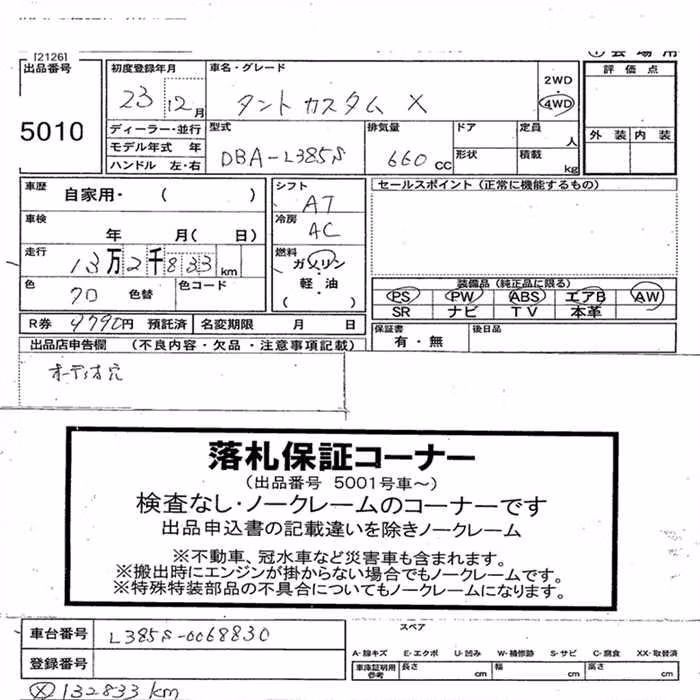 [2126]
出品番号
5010
初度登録年月
23 12月
車名・グレード
タント カスタム X
2WD
4WD
評価点
外装 内装
ディーラー・並行
モデル年式 年
ハンドル 左・右
型式
DBA-L385S
排気量
660 CC
ドア
形状
定員
人
積載
kg
車歴
自家用・ ( )
車検
年 月( 日)
走行
13万2千833 km
色
色替
色コード
シフト
AT
冷房
AC
燃料
ガソリン
軽・油
( )
セールスポイント (正常に機能するもの)
装備品 (純正品に限る)
PS PW ABS エアB AW
SR ナビ TV 本革
R券 9790円 預託済
名変期限 月 日
保証書
有・無
後日品
出品店申告欄 (不良内容・欠品・注意事項記載)
オーディオ穴
落札保証コーナー
(出品番号 5001号車～)
検査なし・ノークレームのコーナーです
出品申込書の記載違いを除きノークレーム
※不動車、冠水車など災害車も含まれます。
※搬出時にエンジンが掛からない場合でもノークレームです。
※特殊特装部品の不具合についてもノークレームになります。
車台番号
L385S-0068830
登録番号
132833 km
スペア
A-線キズ E-エクボ U-凹み W-補修跡 S-サビ C-腐食 XX-取替済
車庫証明用
参考
長さ cm
幅 cm
高さ cm